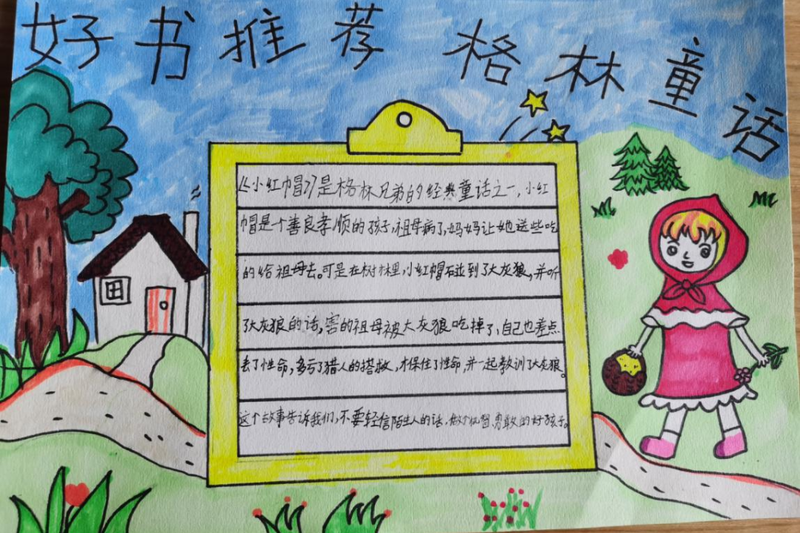 好书推荐 格林童话
《小红帽》是格林兄弟的经典童话之一,小红
帽是个善良孝顺的孩子,祖母病了,妈妈让她送些吃
的给祖母去。可是在树林里,小红帽碰到了大灰狼,并听
了大灰狼的话,害的祖母被大灰狼吃掉了,自己也差点
丢了性命,多亏了猎人的搭救,才保住了性命,并一起教训了大灰狼。
这个故事告诉我们,不要轻信陌生人的话,做个机智勇敢的好孩子。